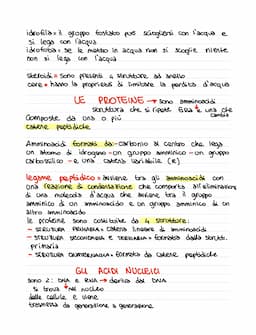 idrofila: il gruppo fosfato può sciogliersi con l'acqua e
si lega con l'acqua
idrofoba: se le metto in acqua non si scoglie niente
non si lega con l'acqua
steroidi = sono presenti 4 strutture ad anello
cere = hanno la proprietà di limitare la perdita d'acqua
LE PROTEINE → sono aminoacidi
struttura che si ripete
una che
cambia
Composte da una o più
catene peptidiche
Amminoacidi formati da: -carbonio al centro che lega
un atomo di idrogeno - un gruppo amminico - un gruppo
carbossilico - e una catena variabile (R)
legame peptidico = avviene tra gli aminoacidi con
una reazione di condensazione che comporta all'eliminazione
di una molecola d'acqua che avviene tra il gruppo
amminico di un aminoacido e un gruppo amminico di un
altro aminoacido
le proteine sono costituite da 4 strutture:
- STRUTTURA PRIMARIA: catena lineare di aminoacidi
- STRUTTURA SECONDARIA E TERZIARIA = formate dalla strutt.
primaria
- STRUTTURA QUATERNARIA = formata da catene peptidiche
GLI ACIDI NUCLEICI
sono 2: DNA e RNA → deriva dal DNA
si trova nel nucleo
delle cellule e viene
trasmesso da generazione a generazione